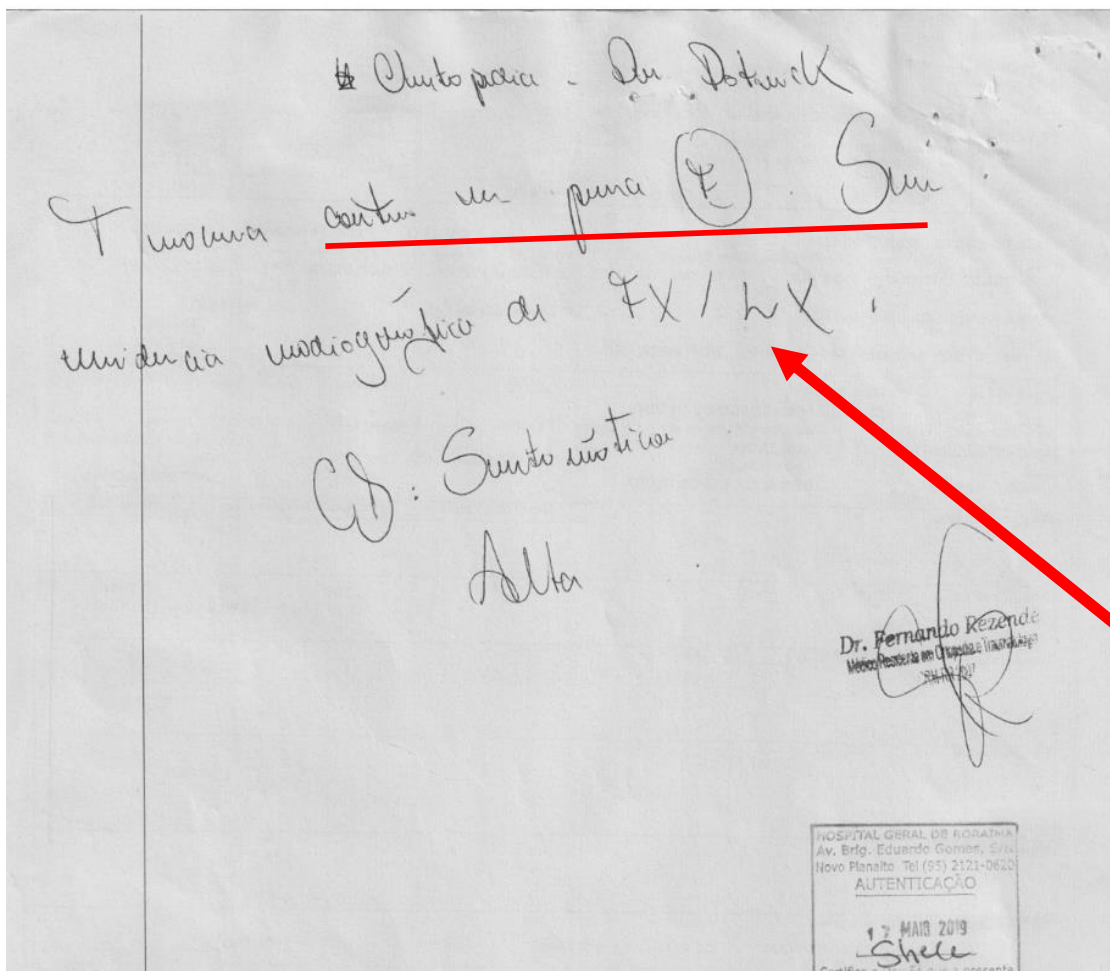 # Ortopedia - Dr. Patrick
Trauma contuso em perna (E). Sem
evidencia radiográfica de FX / LX.
CD: Sintomáticos
Alta
Dr. Fernando Rezende
Médico Residente em Ortopedia e Traumatologia
HOSPITAL GERAL DE RORAIMA
Av. Brig. Eduardo Gomes, S/N
Novo Planalto Tel (95) 2121-0620
AUTENTICAÇÃO
17 MAIO 2019